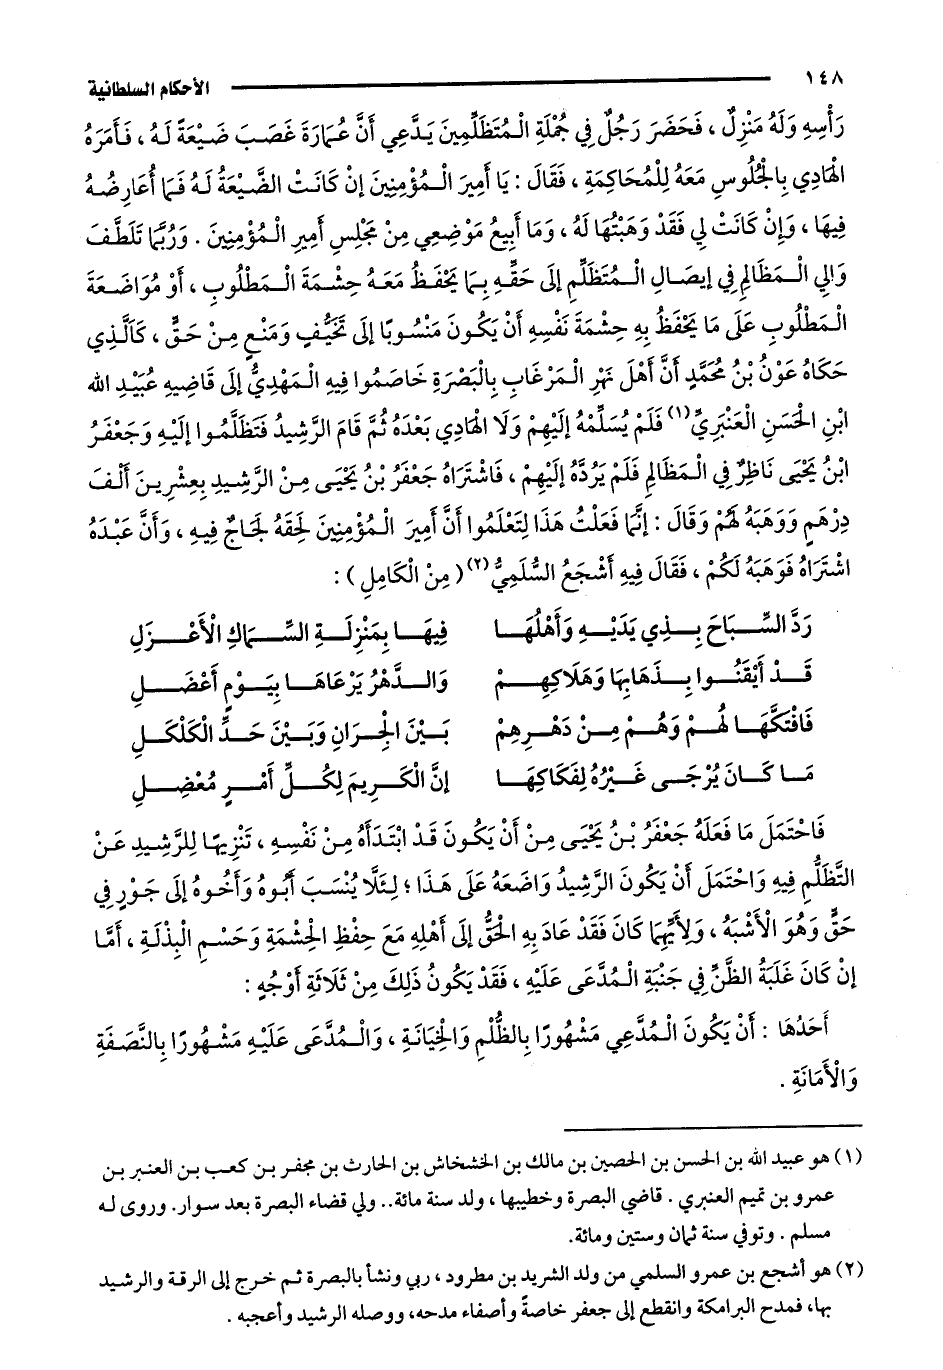 ١٤٨ الأحكام السلطانية
رَأْسِهِ وَلَهُ مَنْزِلٌ ، فَحَضَرَ رَجُلٌ فِي جُمْلَةِ الْمُتَظَلِّمِينَ يَدَّعِي أَنَّ عُمَارَةَ غَصَبَ ضَيْعَةً لَهُ ، فَأَمَرَهُ
الْهَادِي بِالْجُلُوسِ مَعَهُ لِلْمُحَاكِمَةِ ، فَقَالَ : يَا أَمِيرَ الْمُؤْمِنِينَ إِنْ كَانَتْ الضَّيْعَةُ لَهُ فَمَا أُعَارِضُهُ
فِيهَا ، وَإِنْ كَانَتْ لِي فَقَدْ وَهَبْتُهَا لَهُ ، وَمَا أَبِيعُ مَوْضِعِي مِنْ مَجْلِسِ أَمِيرِ الْمُؤْمِنِينَ . وَرُبَّمَا تَلَطَّفَ
وَالِي الْمَظَالِمِ فِي إيصَالِ الْمُتَظَلِّمِ إلَى حَقِّهِ بِمَا يَحْفَظُ مَعَهُ حِشْمَةَ الْمَطْلُوبِ ، أَوْ مُوَاضَعَةَ
الْمَطْلُوبِ عَلَى مَا يَحْفَظُ بِهِ حِشْمَةَ نَفْسِهِ أَنْ يَكُونَ مَنْسُوبًا إلَى تَحَيُّفٍ وَمَنْعٍ مِنْ حَقٍّ ، كَالَّذِي
حَكَاهُ عَوْنُ بْنُ مُحَمَّدٍ أَنَّ أَهْلَ نَهْرِ الْمَرْغَابِ بِالْبَصْرَةِ خَاصَمُوا فِيهِ الْمَهْدِيَّ إلَى قَاضِيهِ عُبَيْدِ الله
ابْنِ الْحَسَنِ الْعَنْبَرِيِّ(١) فَلَمْ يُسَلِّمْهُ إلَيْهِمْ وَلَا الْهَادِي بَعْدَهُ ثُمَّ قَامَ الرَّشِيدُ فَتَظَلَّمُوا إلَيْهِ وَجَعْفَرُ
ابْنُ يَحْيَى نَاظِرٌ فِي الْمَظَالِمِ فَلَمْ يَرُدَّهُ إلَيْهِمْ ، فَاشْتَرَاهُ جَعْفَرُ بْنُ يَحْيَى مِنْ الرَّشِيدِ بِعِشْرِينَ أَلْفَ
دِرْهَمٍ وَوَهَبَهُ لَهُمْ وَقَالَ : إنَّمَا فَعَلْتُ هَذَا لِتَعْلَمُوا أَنَّ أَمِيرَ الْمُؤْمِنِينَ لَحِقَهُ لَجَاجٌ فِيهِ ، وَأَنَّ عَبْدَهُ
اشْتَرَاهُ فَوَهَبَهُ لَكُمْ ، فَقَالَ فِيهِ أَشْجَعُ السُّلَمِيُّ(٢) ( مِنْ الْكَامِلِ ) :
رَدَّ السِّبَاحَ بِذِي يَدَيْهِ وَأَهْلُهَا فِيهَا بِمَنْزِلَةِ السِّمَاكِ الْأَعْزَلِ
قَدْ أَيْقَنُوا بِذَهَابِهَا وَهَلَاكِهِمْ وَالدَّهْرُ يَرْعَاهَا بِيَوْمٍ أَعْضَلِ
فَافْتَكَّهَا لَهُمْ وَهُمْ مِنْ دَهْرِهِمْ بَيْنَ الْجِرَانِ وَبَيْنَ حَدِّ الْكَلْكَلِ
مَا كَانَ يُرْجَى غَيْرُهُ لِفَكَاكِهَا إنَّ الْكَرِيمَ لِكُلِّ أَمْرٍ مُعْضِلِ
فَاحْتَمَلَ مَا فَعَلَهُ جَعْفَرُ بْنُ يَحْيَى مِنْ أَنْ يَكُونَ قَدْ ابْتَدَأَهُ مِنْ نَفْسِهِ ، تَنْزِيهًا لِلرَّشِيدِ عَنْ
التَّظَلُّمِ فِيهِ وَاحْتَمَلَ أَنْ يَكُونَ الرَّشِيدُ وَاضَعَهُ عَلَى هَذَا ؛ لِئَلَّا يُنْسَبَ أَبُوهُ وَأَخُوهُ إلَى جَوْرٍ فِي
حَقٍّ وَهُوَ الْأَشْبَهُ ، وَلِأَيِّهِمَا كَانَ فَقَدْ عَادَ بِهِ الْحَقُّ إلَى أَهْلِهِ مَعَ حِفْظِ الْحِشْمَةِ وَحَسْمِ الْبِذْلَةِ ، أَمَّا
إنْ كَانَ غَلَبَةُ الظَّنِّ فِي جَنْبَةِ الْمُدَّعَى عَلَيْهِ ، فَقَدْ يَكُونُ ذَلِكَ مِنْ ثَلَاثَةِ أَوْجُهٍ :
أَحَدُهَا : أَنْ يَكُونَ الْمُدَّعِي مَشْهُورًا بِالظُّلْمِ وَالْخِيَانَةِ ، وَالْمُدَّعَى عَلَيْهِ مَشْهُورًا بِالنَّصَفَةِ
وَالْأَمَانَةِ .
(١) هو عبيد الله بن الحسن بن الحصين بن مالك بن الخشخاش بن الحارث بن مجفر بن كعب بن العنبر بن
عمرو بن تميم العنبري . قاضي البصرة وخطيبها ، ولد سنة مائة.. ولي قضاء البصرة بعد سوار. وروى له
مسلم . وتوفي سنة ثمان وستين ومائة.
(٢) هو أشجع بن عمرو السلمي من ولد الشريد بن مطرود ، ربي ونشأ بالبصرة ثم خرج إلى الرقة والرشيد
بها، فمدح البرامكة وانقطع إلى جعفر خاصةً وأصفاء مدحه، ووصله الرشيد وأعجبه .